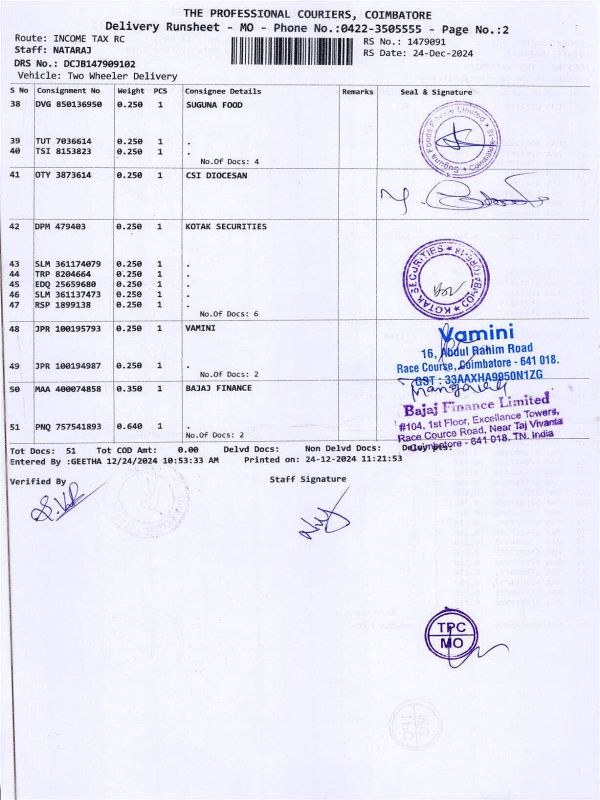 THE PROFESSIONAL COURIERS, COIMBATORE
Delivery Runsheet - MO - Phone No.:0422-3505555 - Page No.:2
Route: INCOME TAX RC
RS No.: 1479091
Staff: NATARAJ
RS Date: 24-Dec-2024
DRS No.: DCJB147909102
Vehicle: Two Wheeler Delivery
S No Consignment No Weight PCS Consignee Details Remarks Seal & Signature
38 DVG 850136950 0.250 1 SUGUNA FOOD
39 TUT 7036614 0.250 1 .
40 TSI 8153823 0.250 1 .
No.Of Docs: 4
Suguna Foods Private Limited * Coimbatore-18 *
41 OTY 3873614 0.250 1 CSI DIOCESAN
42 DPM 479403 0.250 1 KOTAK SECURITIES
43 SLM 361174079 0.250 1 .
44 TRP 8204664 0.250 1 .
45 EDQ 25659680 0.250 1 .
46 SLM 361137473 0.250 1 .
47 RSP 1899138 0.250 1 .
No.Of Docs: 6
KOTAK SECURITIES
48 JPR 100195793 0.250 1 VAMINI
49 JPR 100194987 0.250 1 .
No.Of Docs: 2
Vamini
16, Abdul Rahim Road
Race Course, Coimbatore - 641 018.
GST : 33AAXHA9950N1ZG
50 MAA 400074858 0.350 1 BAJAJ FINANCE
51 PNQ 757541893 0.640 1 .
No.Of Docs: 2
Bajaj Finance Limited
#104, 1st Floor, Excellance Towers,
Race Cource Road, Near Taj Vivanta
Coimbatore - 641 018. TN. India
Tot Docs: 51 Tot COD Amt: 0.00 Delvd Docs: Non Delvd Docs:
Entered By :GEETHA 12/24/2024 10:53:33 AM Printed on: 24-12-2024 11:21:53
Verified By
Staff Signature
TPC
MO